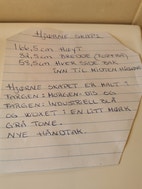 HJØRNE SKAPET
166,5cm HØYT
82,5cm BREDDE
58,5cm HVER SIDE BAK.
INN TIL MIDTEN
HJØRNE SKAPET ER MALT I
FARGEN: MORGEN: DIS OG
FARGEN: INDUSTRIELL BLÅ
OG VOKSET I EN LITT MØRK
GRÅ TONE.
NYE HÅNDTAK.